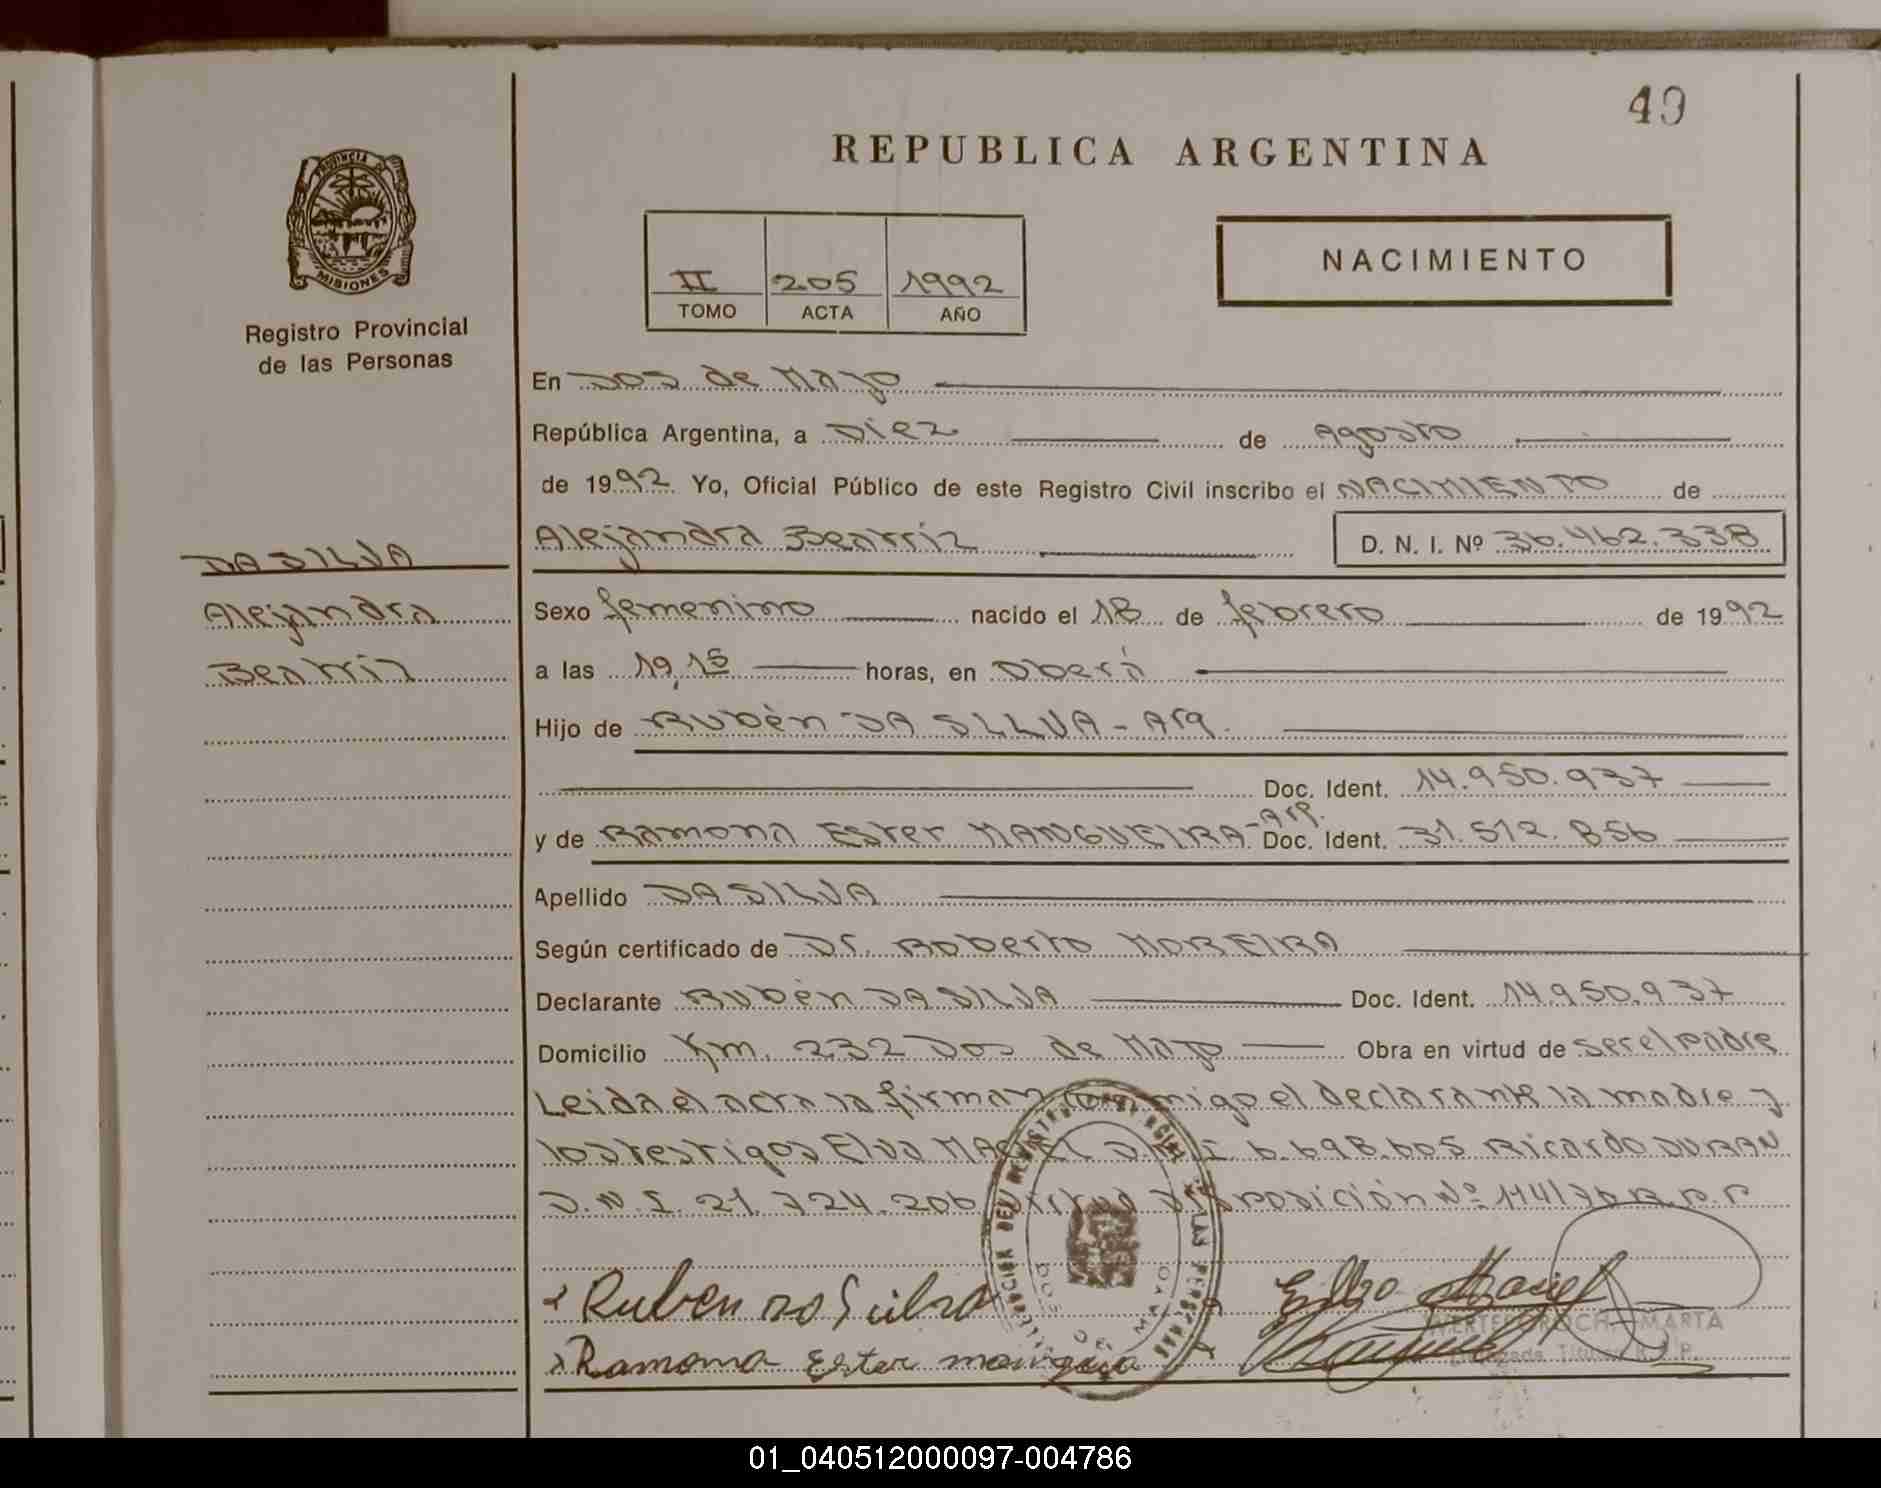 49
REPUBLICA ARGENTINA
PROVINCIA DE
MISIONES
Registro Provincial
de las Personas
II 205 1992
TOMO ACTA AÑO
NACIMIENTO
En Dos de Mayo
República Argentina, a Diez de Agosto
de 1992 Yo, Oficial Público de este Registro Civil inscribo el NACIMIENTO de
Alejandra Beatriz D. N. I. Nº 36.462.338
DA SILVA
Alejandra
Beatriz
Sexo femenino nacido el 18 de febrero de 1992
a las 19,15 horas, en Oberá
Hijo de Rubén DA SILVA - Arg.
Doc. Ident. 14.950.937
y de Ramona Ester MANGUEIRA - Arg. Doc. Ident. 31.512.856
Apellido DA SILVA
Según certificado de Dr. Roberto MOREIRA
Declarante Rubén DA SILVA Doc. Ident. 14.950.937
Domicilio Km. 232 Dos de Mayo Obra en virtud de ser el padre
Leida el acta la firman conmigo el declarante la madre y
los testigos Elva MACIEL D.N.I. 6.698.605 Ricardo DURAN
D.N.I. 21.724.206 virtud Disposición Nº 114/76 R.P.P
DOS DE MAYO
Ruben da Silva
Ramona Ester
MARTA
Titular R. P.
01_040512000097-004786